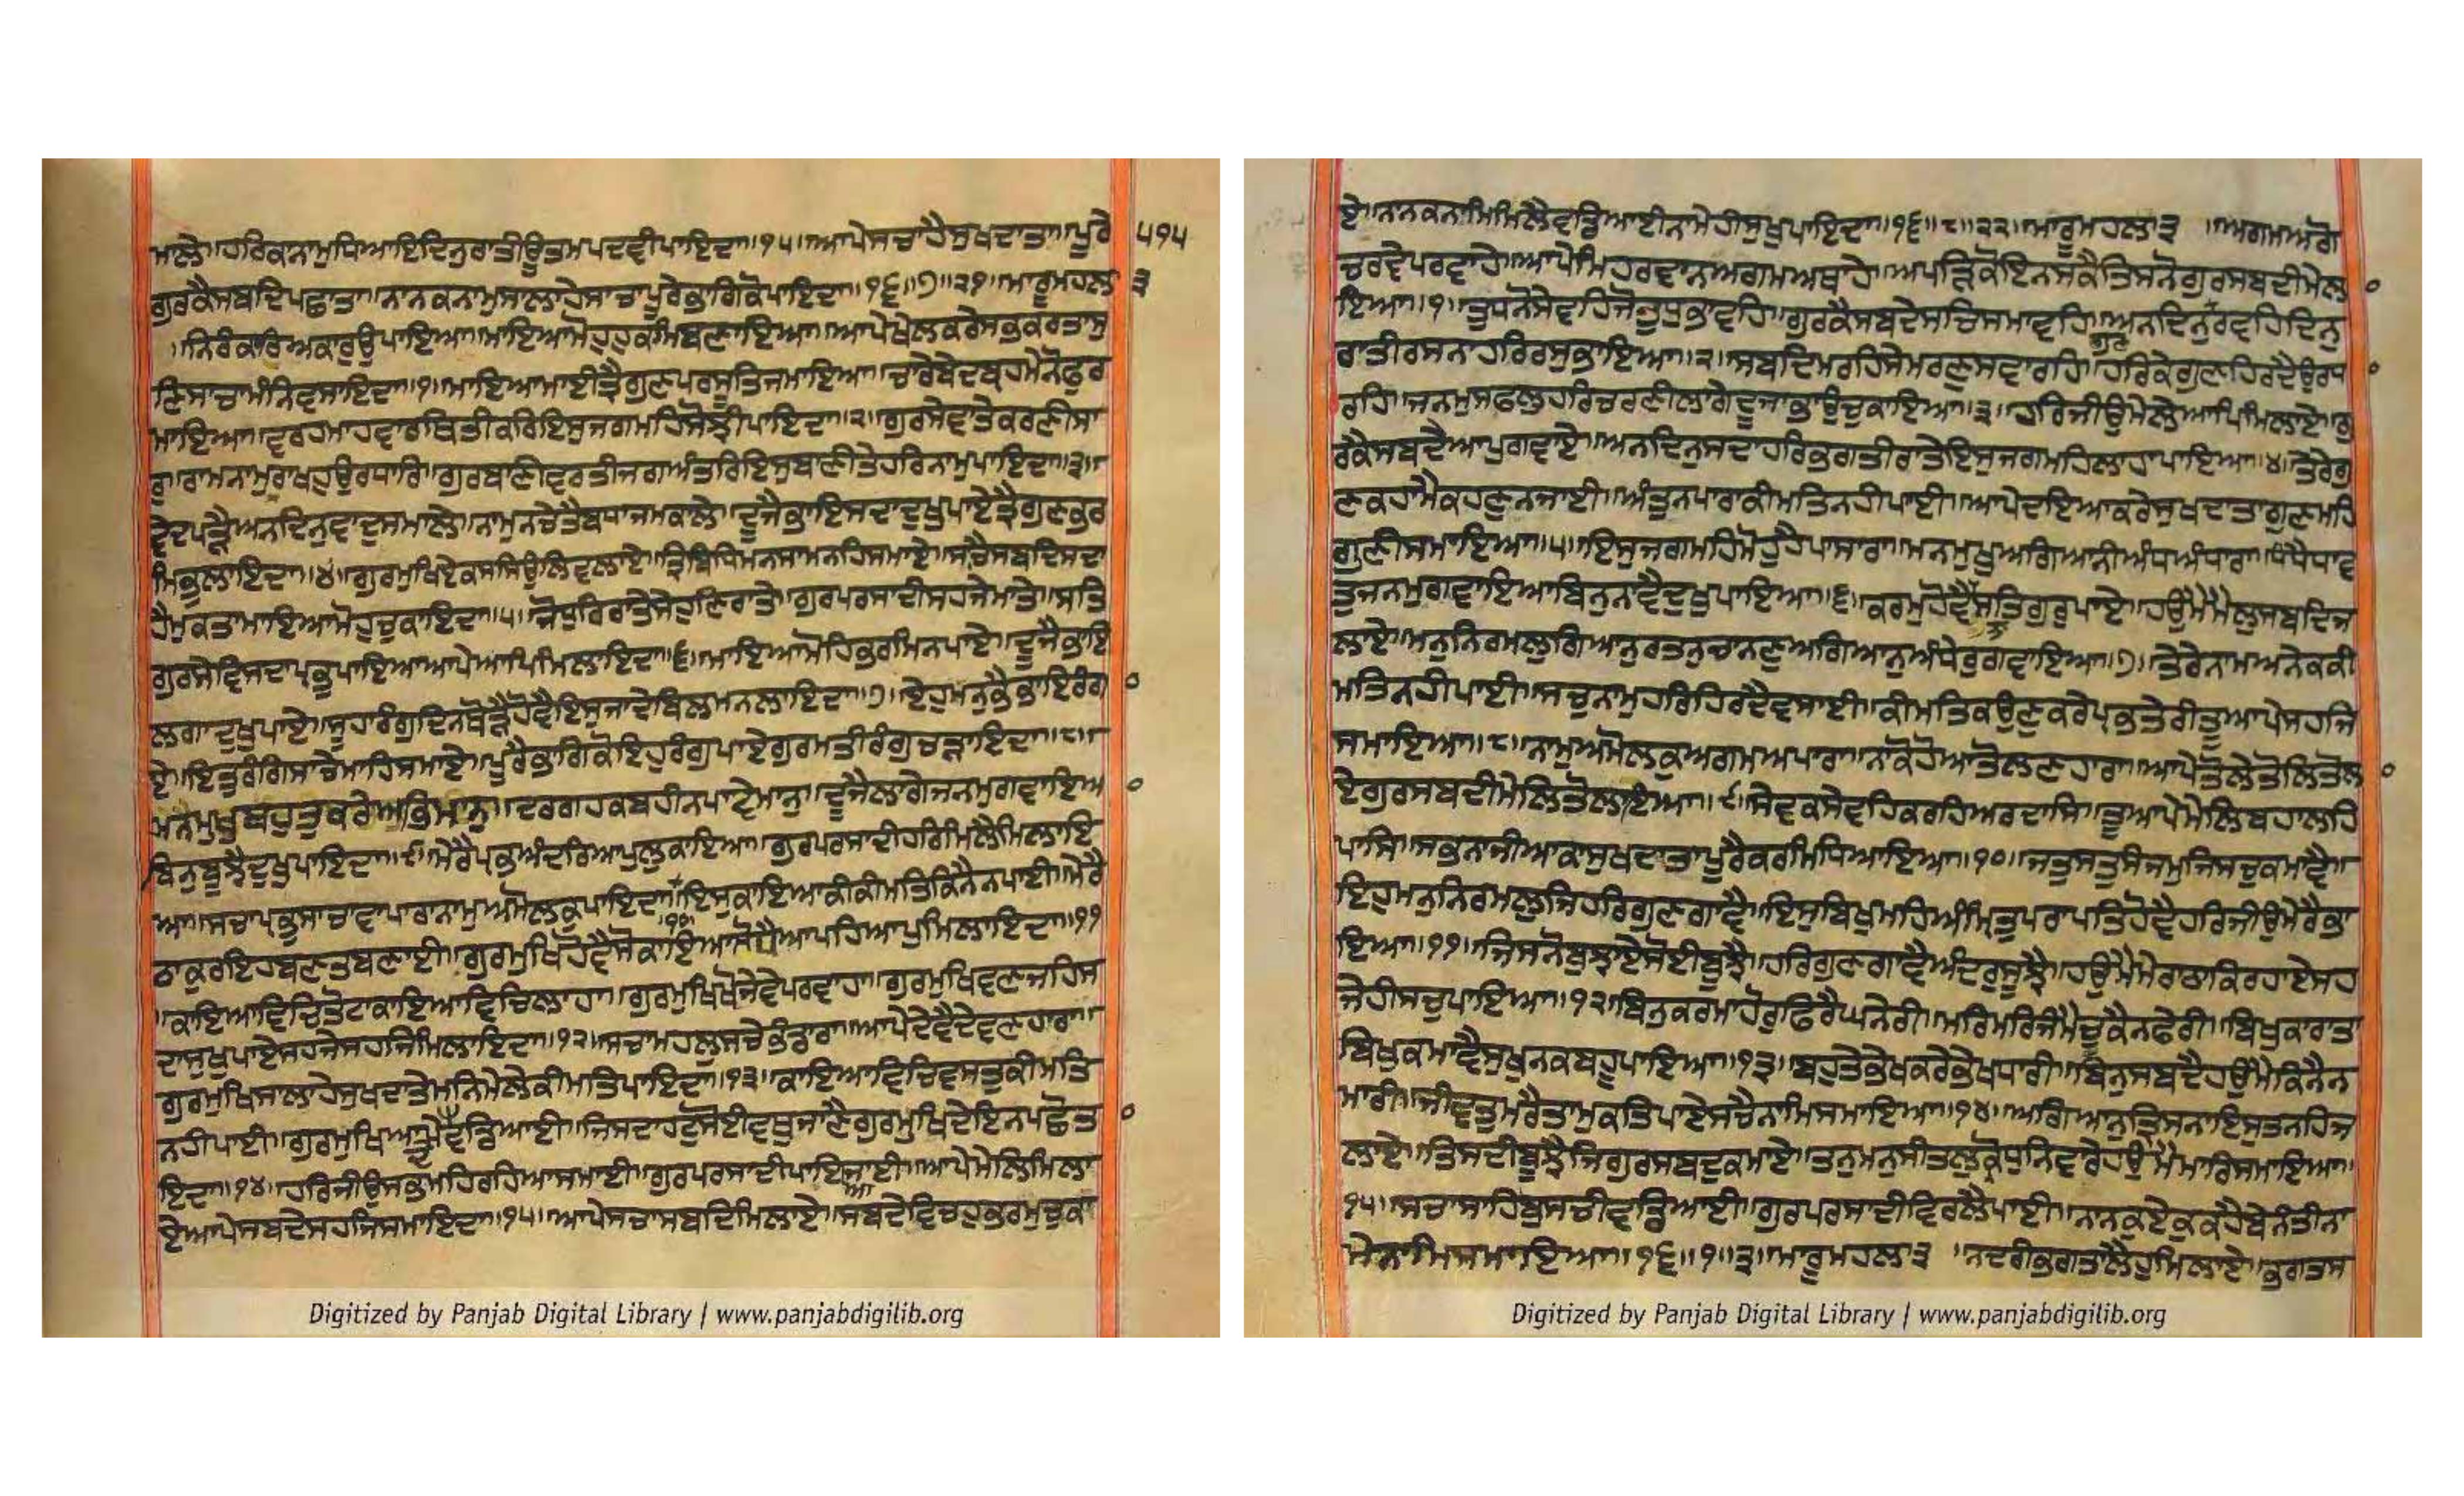 ਮਾਲੇ॥ਹਰਿਕਨਾਮੁਧਿਆਇਦਿਨੁਰਾਤੀਊਤਮਪਦਵੀਪਾਇਦਾ॥੧੫॥ਆਪੇਸਚਾਹੈਸੁਖਦਾਤਾ॥ਪੂਰੇ ੫੧੫
ਗੁਰਕੈਸਬਦਿਪਛਾਤਾ॥ਨਾਨਕਨਾਮੁਸਲਾਹੇਸਾਚਾਪੂਰੇਭਾਗਿਕੋਪਾਇਦਾ॥੧੬॥੭॥੨੧॥ਮਾਰੂਮਹਲਾ ੩
॥ਨਿਰੰਕਾਰਿਅਕਾਰੁਉਪਾਇਆ॥ਮਾਇਆਮੋਹੁਹੁਕਮਿਬਣਾਇਆ॥ਆਪੇਖੇਲਕਰੇਸਭਕਰਤਾਸੁ
ਣਿਸਾਚਾਮੰਨਿਵਸਾਇਦਾ॥੧॥ਮਾਇਆਮਾਈਤ੍ਰੈਗੁਣਪਰਸੂਤਿਜਮਾਇਆ॥ਚਾਰੇਬੇਦਬ੍ਰਹਮੇਨੋਫੁਰ
ਮਾਇਆ॥ਵਰਹਮਾਹਵਾਰਥਿਤੀਕਰਿਇਸੁਜਗਮਹਿਸੋਝੀਪਾਇਦਾ॥੨॥ਗੁਰਸੇਵਾਤੇਕਰਣੀਸਾ
ਰੁ॥ਰਾਮਨਾਮੁਰਾਖਹੁਉਰਧਾਰਿ॥ਗੁਰਬਾਣੀਵਰਤੀਜਗਅੰਤਰਿਇਸੁਬਾਣੀਤੇਹਰਿਨਾਮੁਪਾਇਦਾ॥੩॥
ਵੇਦਪੜੈਅਨਦਿਨੁਵਾਦੁਸਮਾਲੇ॥ਨਾਮੁਨਚੇਤੈਬਧਾਜਮਕਾਲੇ॥ਦੂਜੈਭਾਇਸਦਾਦੁਖੁਪਾਏਤ੍ਰੈਗੁਣਭਰ
ਮਿਭੁਲਾਇਦਾ॥੪॥ਗੁਰਮੁਖਿਏਕਸਸਿਉਲਿਵਲਾਏ॥ਤ੍ਰਿਬਿਧਿਮਨਸਾਮਨਹਿਸਮਾਏ॥ਸਚੈਸਬਦਿਸਦਾ
ਹੈਮੁਕਤਾਮਾਇਆਮੋਹੁਚੁਕਾਇਦਾ॥੫॥ਜੋਧੁਰਿਰਾਤੇਸੇਹੁਣਿਰਾਤੇ॥ਗੁਰਪਰਸਾਦੀਸਹਜੇਮਾਤੇ॥ਸਤਿ
ਗੁਰਸੇਵਿਸਦਾਪ੍ਰਭੁਪਾਇਆਆਪੇਆਪਿਮਿਲਾਇਦਾ॥੬॥ਮਾਇਆਮੋਹਿਭਰਮਿਨਪਾਏ॥ਦੂਜੈਭਾਇ
ਲਗਾਦੁਖੁਪਾਏ॥ਸੂਹਾਰੰਗੁਦਿਨਥੋੜੇਹੋਵੈਇਸੁਜਾਦੇਬਿਲਮਨਲਾਇਦਾ॥੭॥ਏਹੁਮਨੁਭੈਭਾਇਰੰਗਾ
ਏ॥ਇਤੁਰੰਗਿਸਾਚੇਮਾਹਿਸਮਾਏ॥ਪੂਰੈਭਾਗਿਕੋਇਹੁਰੰਗੁਪਾਏਗੁਰਮਤੀਰੰਗੁਚੜਾਇਦਾ॥੮॥
ਮਨਮੁਖੁਬਹੁਤੁਕਰੇਅਭਿਮਾਨੁ॥ਦਰਗਹਕਬਹੀਨਪਾਵੈਮਾਨੁ॥ਦੂਜੈਲਾਗੇਜਨਮੁਗਵਾਇਆ
ਬਿਨੁਬੂਝੈਦੁਖੁਪਾਇਦਾ॥੯॥ਮੇਰੈਪ੍ਰਭਿਅੰਦਰਿਆਪੁਲੁਕਾਇਆ॥ਗੁਰਪਰਸਾਦੀਹਰਿਮਿਲੈਮਿਲਾਇ
ਆ॥ਸਚਾਪ੍ਰਭੁਸਾਚਾਵਾਪਾਰਾਨਾਮੁਅਮੋਲਕੁਪਾਇਦਾ॥ਇਸੁਕਾਇਆਕੀਕੀਮਤਿਕਿਨੈਨਪਾਈ॥ਮੇਰੈ
॥੧੦॥
ਠਾਕੁਰਇਹਬਣਤਬਣਾਈ॥ਗੁਰਮੁਖਿਹੋਵੈਸੋਕਾਇਆਸੋਧੈਆਪਹਿਆਪੁਮਿਲਾਇਦਾ॥੧੧
॥ਕਾਇਆਵਿਚਿਤੋਟਾਕਾਇਆਵਿਚਿਲਾਹਾ॥ਗੁਰਮੁਖਿਖੋਜੇਵੇਪਰਵਾਹਾ॥ਗੁਰਮੁਖਿਵਣਜਹਿਸ
ਦਾਸੁਖੁਪਾਏਸਹਜੇਸਹਜਿਮਿਲਾਇਦਾ॥੧੨॥ਸਚਾਮਹਲੁਸਚੇਭੰਡਾਰਾ॥ਆਪੇਦੇਵੈਦੇਵਣਹਾਰਾ॥
ਗੁਰਮੁਖਿਸਾਲਾਹੇਸੁਖਦਾਤੇਮਨਿਮੇਲੇਕੀਮਤਿਪਾਇਦਾ॥੧੩॥ਕਾਇਆਵਿਚਿਵਸਤੁਕੀਮਤਿ
ਨਹੀਪਾਈ॥ਗੁਰਮੁਖਿਆਪੇਦੇਵਡਿਆਈ॥ਜਿਸਦਾਹਟੁਸੋਈਵਥੁਜਾਣੈਗੁਰਮੁਖਿਦੇਇਨਪਛੋਤਾ
ਇਦਾ॥੧੪॥ਹਰਿਜੀਉਸਭਮਹਿਰਹਿਆਸਮਾਈ॥ਗੁਰਪਰਸਾਦੀਪਾਇਆਜਾਈ॥ਆਪੇਮੇਲਿਮਿਲਾ
ਏਆਪੇਸਬਦੇਸਹਜਿਸਮਾਇਦਾ॥੧੫॥ਆਪੇਸਚਾਸਬਦਿਮਿਲਾਏ॥ਸਬਦੇਵਿਚਹੁਭਰਮੁਚੁਕਾ
Digitized by Panjab Digital Library | www.panjabdigilib.org
ਏ॥ਨਾਨਕਨਾਮਿਮਿਲੈਵਡਿਆਈਨਾਮੇਹੀਸੁਖੁਪਾਇਦਾ॥੧੬॥੮॥੨੨॥ਮਾਰੂਮਹਲਾ੩ ॥ਅਗਮਅਗੋ
ਚਰਵੇਪਰਵਾਹੇ॥ਆਪੇਮਿਹਰਵਾਨਅਗਮਅਥਾਹੇ॥ਅਪੜਿਕੋਇਨਸਕੈਤਿਸਨੋਗੁਰਸਬਦੀਮੇਲਾ
ਇਆ॥੧॥ਤੁਧਨੋਸੇਵਹਿਜੋਤੁਧੁਭਾਵਹਿ॥ਗੁਰਕੈਸਬਦੇਸਚਿਸਮਾਵਹਿ॥ਅਨਦਿਨੁਰਵਹਿਦਿਨੁ
ਗੁਣ
ਰਾਤੀਰਸਨਾਹਰਿਰਸੁਭਾਇਆ॥੨॥ਸਬਦਿਮਰਹਿਸੇਮਰਣੁਸਵਾਰਹਿ॥ਹਰਿਕੇਗੁਣਹਿਰਦੈਉਰਧਾ
ਰਹਿ॥ਜਨਮੁਸਫਲੁਹਰਿਚਰਣੀਲਾਗੇਦੂਜਾਭਾਉਚੁਕਾਇਆ॥੩॥ਹਰਿਜੀਉਮੇਲੇਆਪਿਮਿਲਾਏ॥ਗੁ
ਰਕੈਸਬਦੈਆਪੁਗਵਾਏ॥ਅਨਦਿਨੁਸਦਾਹਰਿਭਗਤੀਰਾਤੇਇਸੁਜਗਮਹਿਲਾਹਾਪਾਇਆ॥੪॥ਤੇਰੇਗੁ
ਣਕਹਾਮੈਕਹਣੁਨਜਾਈ॥ਅੰਤੁਨਪਾਰਾਕੀਮਤਿਨਹੀਪਾਈ॥ਆਪੇਦਇਆਕਰੇਸੁਖਦਾਤਾਗੁਣਮਹਿ
ਗੁਣੀਸਮਾਇਆ॥੫॥ਇਸੁਜਗਮਹਿਮੋਹੁਹੈਪਾਸਾਰਾ॥ਮਨਮੁਖੁਅਗਿਆਨੀਅੰਧਅੰਧਾਰਾ॥ਧੰਧੈਧਾਵ
ਤੁਜਨਮੁਗਵਾਇਆਬਿਨੁਨਾਵੈਦੁਖੁਪਾਇਆ॥੬॥ਕਰਮੁਹੋਵੈਸਤਿਗੁਰੁਪਾਏ॥ਹਉਮੈਮੈਲੁਸਬਦਿਜ
ਲਾਏ॥ਮਨੁਨਿਰਮਲੁਗਿਆਨੁਰਤਨੁਚਾਨਣੁਅਗਿਆਨੁਅੰਧੇਰੁਗਵਾਇਆ॥੭॥ਤੇਰੇਨਾਮਅਨੇਕਕੀ
ਮਤਿਨਹੀਪਾਈ॥ਸਚੁਨਾਮੁਹਰਿਹਿਰਦੈਵਸਾਈ॥ਕੀਮਤਿਕਉਣੁਕਰੇਪ੍ਰਭਤੇਰੀਤੂਆਪੇਸਹਜਿ
ਸਮਾਇਆ॥੮॥ਨਾਮੁਅਮੋਲਕੁਅਗਮਅਪਾਰਾ॥ਨਾਕੋਹੋਆਤੋਲਣਹਾਰਾ॥ਆਪੇਤੋਲੇਤੋਲਿਤੋਲਾ
ਏਗੁਰਸਬਦੀਮੇਲਿਤੋਲਾਇਆ॥੯॥ਸੇਵਕਸੇਵਹਿਕਰਹਿਅਰਦਾਸਿ॥ਤੂਆਪੇਮੇਲਿਬਹਾਲਹਿ
ਪਾਸਿ॥ਸਭਨਾਜੀਆਕਾਸੁਖਦਾਤਾਪੂਰੈਕਰਮਿਧਿਆਇਆ॥੧੦॥ਜਤੁਸਤੁਸੰਜਮੁਜਿਸਚੁਕਮਾਵੈ॥
ਇਹੁਮਨੁਨਿਰਮਲੁਜਿਹਰਿਗੁਣਗਾਵੈ॥ਇਸੁਬਿਖੁਮਹਿਅੰਮ੍ਰਿਤੁਪਰਾਪਤਿਹੋਵੈਹਰਿਜੀਉਮੇਰੇਭਾ
ਇਆ॥੧੧॥ਜਿਸਨੋਬੁਝਾਏਸੋਈਬੂਝੈ॥ਹਰਿਗੁਣਗਾਵੈਅੰਦਰੁਸੂਝੈ॥ਹਉਮੈਮੇਰਾਠਾਕਿਰਹਾਏਸਹ
ਜੇਹੀਸਚੁਪਾਇਆ॥੧੨॥ਬਿਨੁਕਰਮਾਹੋਰੁਫਿਰੈਘਨੇਰੀ॥ਮਰਿਮਰਿਜੰਮੈਚੁਕੈਨਫੇਰੀ॥ਬਿਖੁਕਾਰਾਤਾ
ਬਿਖੁਕਮਾਵੈਸੁਖੁਨਕਬਹੂਪਾਇਆ॥੧੩॥ਬਹੁਤੇਭੇਖਕਰੇਭੇਖਧਾਰੀ॥ਬਿਨੁਸਬਦੈਹਉਮੈਕਿਨੈਨ
ਮਾਰੀ॥ਜੀਵਤੁਮਰੈਤਾਮੁਕਤਿਪਾਏਸਚੈਨਾਮਿਸਮਾਇਆ॥੧੪॥ਅਗਿਆਨੁਤ੍ਰਿਸਨਾਇਸੁਤਨਹਿਜ
ਲਾਏ॥ਤਿਸਦੀਬੂਝੈਜਿਗੁਰਸਬਦੁਕਮਾਏ॥ਤਨੁਮਨੁਸੀਤਲੁਕ੍ਰੋਧੁਨਿਵਾਰੇਹਉਮੈਮਾਰਿਸਮਾਇਆ॥
੧੫॥ਸਚਾਸਾਹਿਬੁਸਚੀਵਡਿਆਈ॥ਗੁਰਪਰਸਾਦੀਵਿਰਲੈਪਾਈ॥ਨਾਨਕੁਏਕਕਹੈਬੇਨੰਤੀਨਾ
ਮੇਨਾਮਿਸਮਾਇਆ॥੧੬॥੧॥੩॥ਮਾਰੂਮਹਲਾ੩ ॥ਨਦਰੀਭਗਤਾਲੈਹੁਮਿਲਾਏ॥ਭਗਤਸ
Digitized by Panjab Digital Library | www.panjabdigilib.org